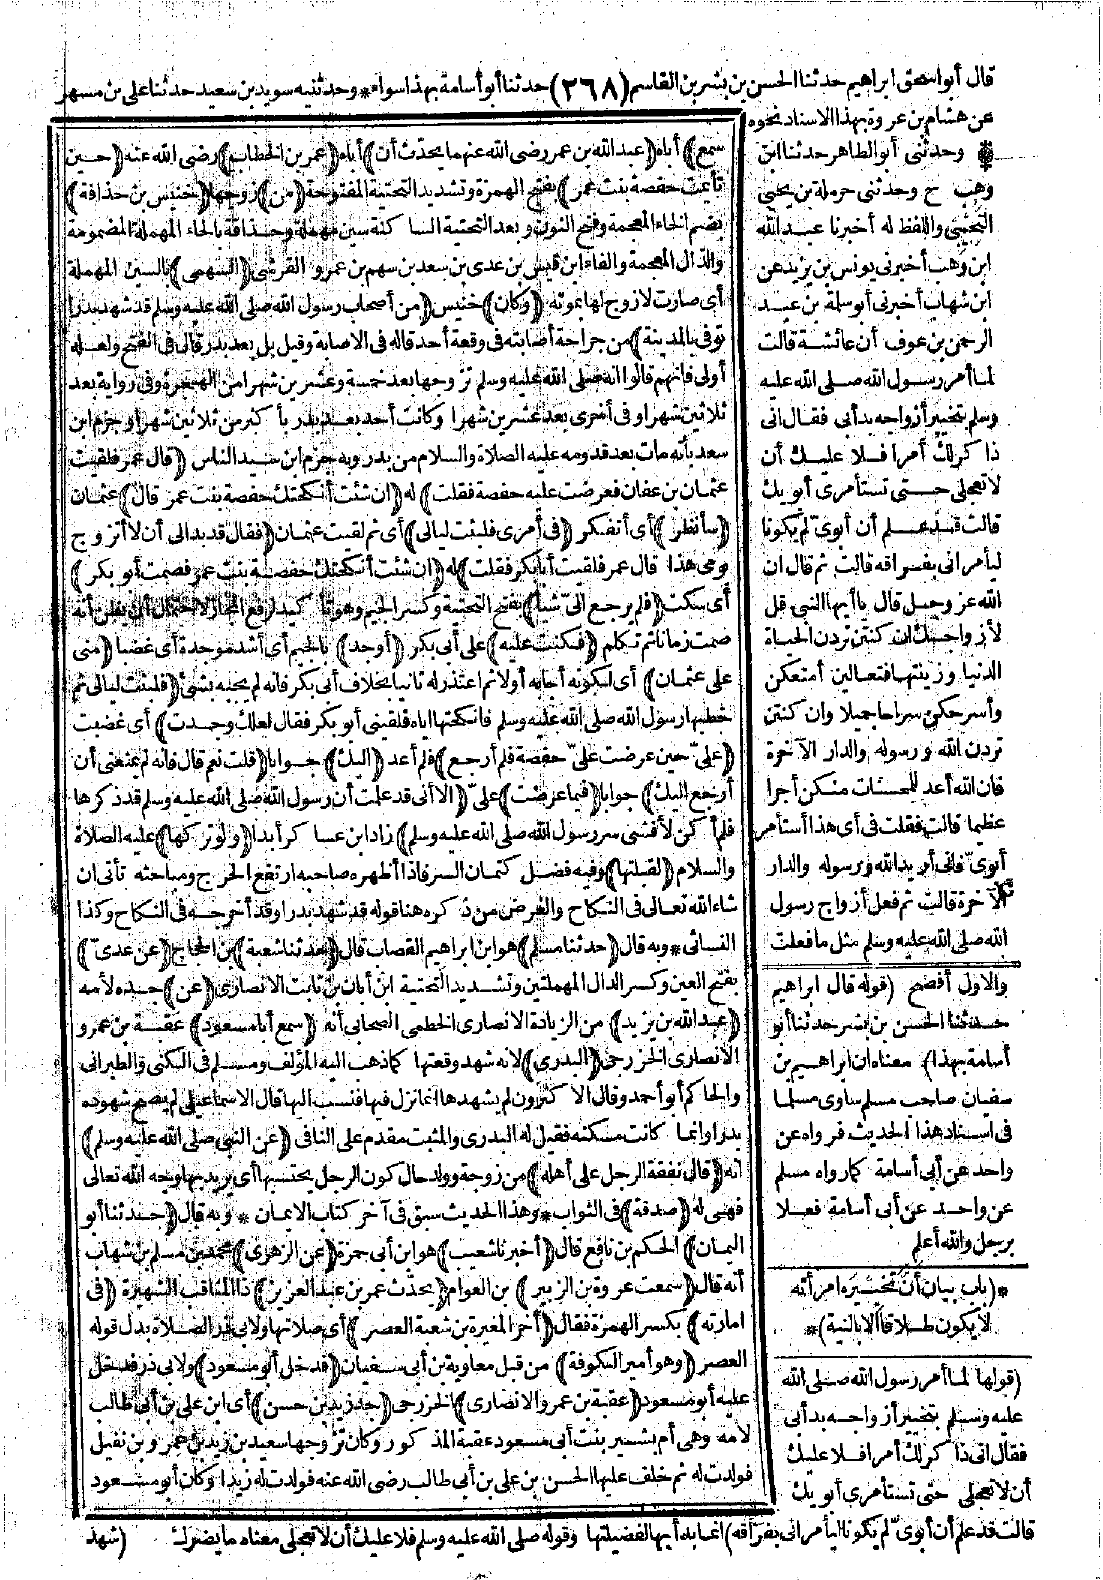 قال أبو اسحق ابراهيم حدثنا الحسن بن بشر بن القاسم (٢٦٨) حدثنا أبو أسامة بهذا سواء * وحدثنيه سويد بن سعيد حدثنا على بن مسهر
عن هشام بن عروة بهذا الاسناد نحوه
وحدثنى أبو الطاهر حدثنا ابن
وهب ح وحدثنى حرملة بن يحيى
التجيبى واللفظ له أخبرنا عبد الله
ابن وهب أخبرنى يونس بن يزيد عن
ابن شهاب أخبرنى أبو سلمة بن عبد
الرحمن بن عوف أن عائشة قالت
لما أمر رسول الله صلى الله عليه
وسلم بتخيير أزواجه بدأبى فقال انى
ذاكر لك أمرا فلا عليك أن
لا تعجلى حتى تستأمرى أبويك
قالت قد علم أن أبوىّ لم يكونا
ليأمرانى بفراقه قالت ثم قال ان
الله عز وجل قال يا أيها النبى قل
لأزواجك ان كنتن تردن الحياة
الدنيا وزينتها فتعالين أمتعكن
وأسرحكن سراحا جميلا وان كنتن
تردن الله ورسوله والدار الآخرة
فان الله أعد للمحسنات منكن أجرا
عظيما قالت فقلت فى أى هذا أستأمر
أبوىّ فانى أريد الله ورسوله والدار
الآخرة قالت ثم فعل أزواج رسول
الله صلى الله عليه وسلم مثل ما فعلت
والاول أفصح (قوله قال ابراهيم
حدثنا الحسن بن بشر حدثنا أبو
أسامة بهذا) معناه ان ابراهيم بن
سفيان صاحب مسلم ساوى مسلما
فى اسناد هذا الحديث فرواه عن
واحد عن أبى أسامة كما رواه مسلم
عن واحد عن أبى أسامة فعلا
برجل والله أعلم
*(باب بيان أن تخييره امرأته
لا يكون طلاقا الا بالنية)*
(قولها لما أمر رسول الله صلى الله
عليه وسلم بتخيير أزواجه بدأبى
فقال انى ذاكر لك أمرا فلا عليك
أن لا تعجلى حتى تستأمرى أبويك
قالت قد علم أن أبوىّ لم يكونا ليأمرانى بفراقه) انما بدأ بها لفضيلتها وقوله صلى الله عليه وسلم فلا عليك أن لا تعجلى معناه ما يضرك
سمع) أباه (عبد الله بن عمر رضى الله عنهما يحدّث أن) أباه (عمر بن الخطاب) رضى الله عنه (حين
تأيمت حفصة بنت عمر) بفتح الهمزة وتشديد التحتية المفتوحة (من) زوجها (خنيس بن حذافة)
بضم الخاء المعجمة وفتح النون وبعد التحتية الساكنة سين مهملة وحذافة بالحاء المهملة المضمومة
والذال المعجمة والفاء ابن قيس بن عدى بن سعد بن سهم بن عمرو القرشى (السهمى) بالسين المهملة
أى صارت لا زوج لها بموته (وكان) خنيس (من أصحاب رسول الله صلى الله عليه وسلم قد شهد بدرا
توفى بالمدينة) من جراحة أصابته فى وقعة أحد قاله فى الاصابة وقيل بل بعد بدر قال فى الفتح ولعله
أولى فانهم قالوا انه صلى الله عليه وسلم تزوجها بعد خمسة وعشرين شهرا من الهجرة وفى رواية بعد
ثلاثين شهرا وفى أخرى بعد عشرين شهرا وكانت أحد بعد بدر بأكثر من ثلاثين شهرا وجزم ابن
سعد بأنه مات بعد قدومه عليه الصلاة والسلام من بدر وبه جزم ابن سيد الناس (قال عمر فلقيت
عثمان بن عفان فعرضت عليه حفصة فقلت) له (ان شئت أنكحتك حفصة بنت عمر قال) عثمان
(سأنظر) أى أتفكر (فى أمرى فلبثت ليالى) أى ثم لقيت عثمان (فقال قد بدا لى أن لا أتزوج
يومى هذا قال عمر فلقيت أبا بكر فقلت) له (ان شئت أنكحتك حفصة بنت عمر فصمت أبو بكر)
أى سكت (فلم يرجع الىّ شيأ) بفتح التحتية وكسر الجيم وهو تأكيد لرفع المجاز لاحتمال أن يظن أنه
صمت زمانا ثم تكلم (فكنت عليه) على أبى بكر (أوجد) بالجيم أى أشد موجدة أى غضبا (منى
على عثمان) أى لكونه أجابه أولا ثم اعتذر له ثانيا بخلاف أبى بكر فانه لم يجبه بشئ (فلبثت ليالى ثم
خطبها رسول الله صلى الله عليه وسلم فأنكحتها اياه فلقينى أبو بكر فقال لعلك وجدت) أى غضبت
(علىّ حين عرضت علىّ حفصة فلم أرجع) فلم أعد (اليك) جوابا (قلت نعم قال فانه لم يمنعنى أن
أرجع اليك) جوابا (فيما عرضت) علىّ (الا أنى قد علمت أن رسول الله صلى الله عليه وسلم قد ذكرها
فلم أكن لأفشى سر رسول الله صلى الله عليه وسلم) زاد ابن عساكر أبدا (ولو تركها) عليه الصلاة
والسلام (لقبلتها) وفيه فضل كتمان السر فاذا أظهره صاحبه ارتفع الحرج ومباحثه تأتى ان
شاء الله تعالى فى النكاح والغرض من ذكره هنا قوله قد شهد بدرا وقد أخرجه فى النكاح وكذا
النسائى * وبه قال (حدثنا مسلم) هو ابن ابراهيم القصاب قال (حدثنا شعبة) بن الحجاج (عن عدىّ)
بفتح العين وكسر الدال المهملتين وتشديد التحتية ابن أبان بن ثابت الانصارى (عن) جده لأمه
(عبد الله بن يزيد) من الزيادة الانصارى الخطمى الصحابى أنه (سمع أبا مسعود) عقبة بن عمرو
الانصارى الخزرجى (البدرى) لانه شهد وقعتها كما ذهب اليه المؤلف ومسلم فى الكنى والطبرانى
والحاكم أبو أحمد وقال الاكثرون لم يشهدها انما نزل فيها فنسب اليها قال الاسماعيلى لم يصح شهوده
بدرا وانما كانت مسكنه فقيل له البدرى والمثبت مقدم على النافى (عن النبى صلى الله عليه وسلم)
أنه (قال نفقة الرجل على أهله) من زوجة وولد حال كون الرجل يحتسبها أى يريد بها وجه الله تعالى
فهى له (صدقة) فى الثواب * وهذا الحديث سبق فى آخر كتاب الايمان * وبه قال (حدثنا أبو
اليمان) الحكم بن نافع قال (أخبرنا شعيب) هو ابن أبى حمزة (عن الزهرى) محمد بن مسلم بن شهاب
أنه قال (سمعت عروة بن الزبير) بن العوام (يحدّث عمر بن عبد العزيز) ذا المناقب الشهيرة (فى
امارته) بكسر الهمزة فقال (أخر المغيرة بن شعبة العصر) أى صلاتها ولابى ذر الصلاة بدل قوله
العصر (وهو أمير الكوفة) من قبل معاوية بن أبى سفيان (فدخل أبو مسعود) ولابى ذر فدخل
عليه أبو مسعود (عقبة بن عمرو الانصارى) الخزرجى (جد زيد بن حسن) أى ابن على بن أبى طالب
لامه وهى أم بشير بنت أبى مسعود عقبة المذكور وكان تزوجها سعيد بن زيد بن عمرو بن نفيل
فولدت له ثم خلف عليها الحسن بن على بن أبى طالب رضى الله عنه فولدت له زيدا وكان أبو مسعود
(شهد